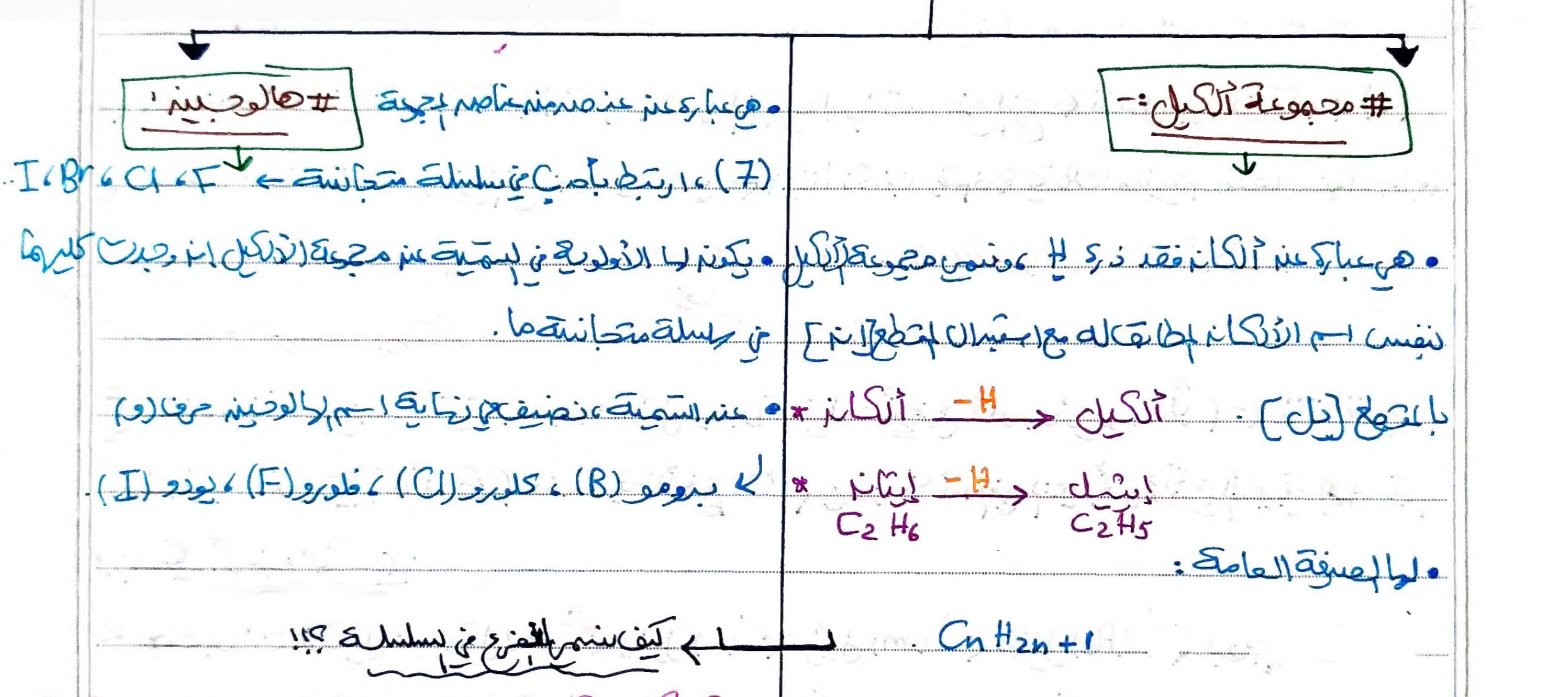 # مجموعة ألكيل :-
• هي عبارة عن ألكان فقد ذرة H ، ونسمي مجموعة الألكيل
بنفس اسم الألكان المطابقة له مع استبدال المقطع [ان]
بالمقطع [يل] .
* ألكان -H → ألكيل
* إيثان -H → إيثيل
C2H6 C2H5
• لها الصيغة العامة :
CnH2n+1
# هالوجين :
• هي عبارة عن عنصر من عناصر المجموعة
(7) ، ارتبط بأحد C في سلسلة متجانسة ← F ، Cl ، Br ، I .
• يكون لها الأولوية في التسمية عن مجموعة الألكيل إن وجدت كليهما
في سلسلة متجانسة ما .
• عند التسمية ، نضيف في نهاية اسم الهالوجين حرف (و)
برومو (B) ، كلورو (Cl) ، فلورو (F) ، يودو (I) .
← كيف نسمي التفرع في السلسلة ؟!!